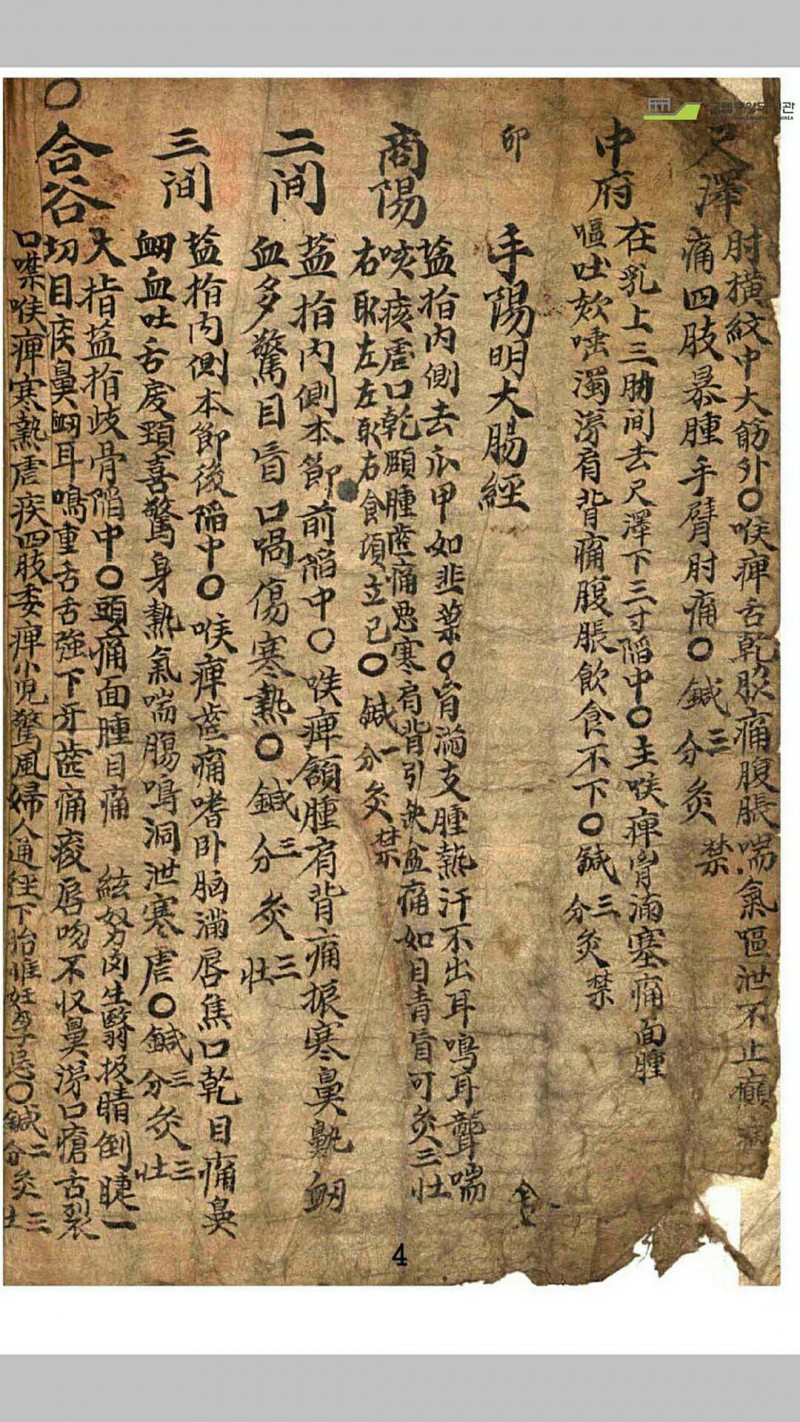 尺澤
肘橫紋中大筋外○喉痺舌乾 痛腹脹喘氣嘔泄不止癲
痛四肢暴腫手臂肘痛○鍼三分灸禁
中府
在乳上三肋间去尺澤下三寸陷中○主喉痺胷滿塞痛面腫
嘔吐欬唾濁涕肩背痛腹脹飮食不下○鍼三分灸禁
卯
手陽明大腸經
商陽
盐指內側去爪甲如韭葉○胷滿支腫熱汗不出耳鳴耳聾喘
咳痎虐口乾頤腫齒痛惡寒肩背引缺盆痛如目青盲可灸三壯
右取左左取右食頃立已○鍼一分灸禁
二间
盐指內側本節前陷中○喉痺頷腫肩背痛振寒鼻鼽衂
血多驚目盲口喎傷寒熱○鍼三分灸三壯
三间
盐指內側本節後陷中○喉痺齒痛嗜卧胸滿唇焦口乾目痛鼻
衂血吐舌戾頸喜驚身熱氣喘腸鳴洞泄寒虐○鍼三分灸三壯
○
合谷
大指盐指歧骨陷中○頭痛面腫目痛 絃努肉生翳扳睛倒睫一
切目疾鼻衂耳鳴重舌舌強下牙齒痛 唇吻不收鼻涕口瘡舌裂
口噤喉痺寒熱虐疾四肢委痺小児驚風婦人通経下胎惟妊孕忌○鍼二分灸三壯
4